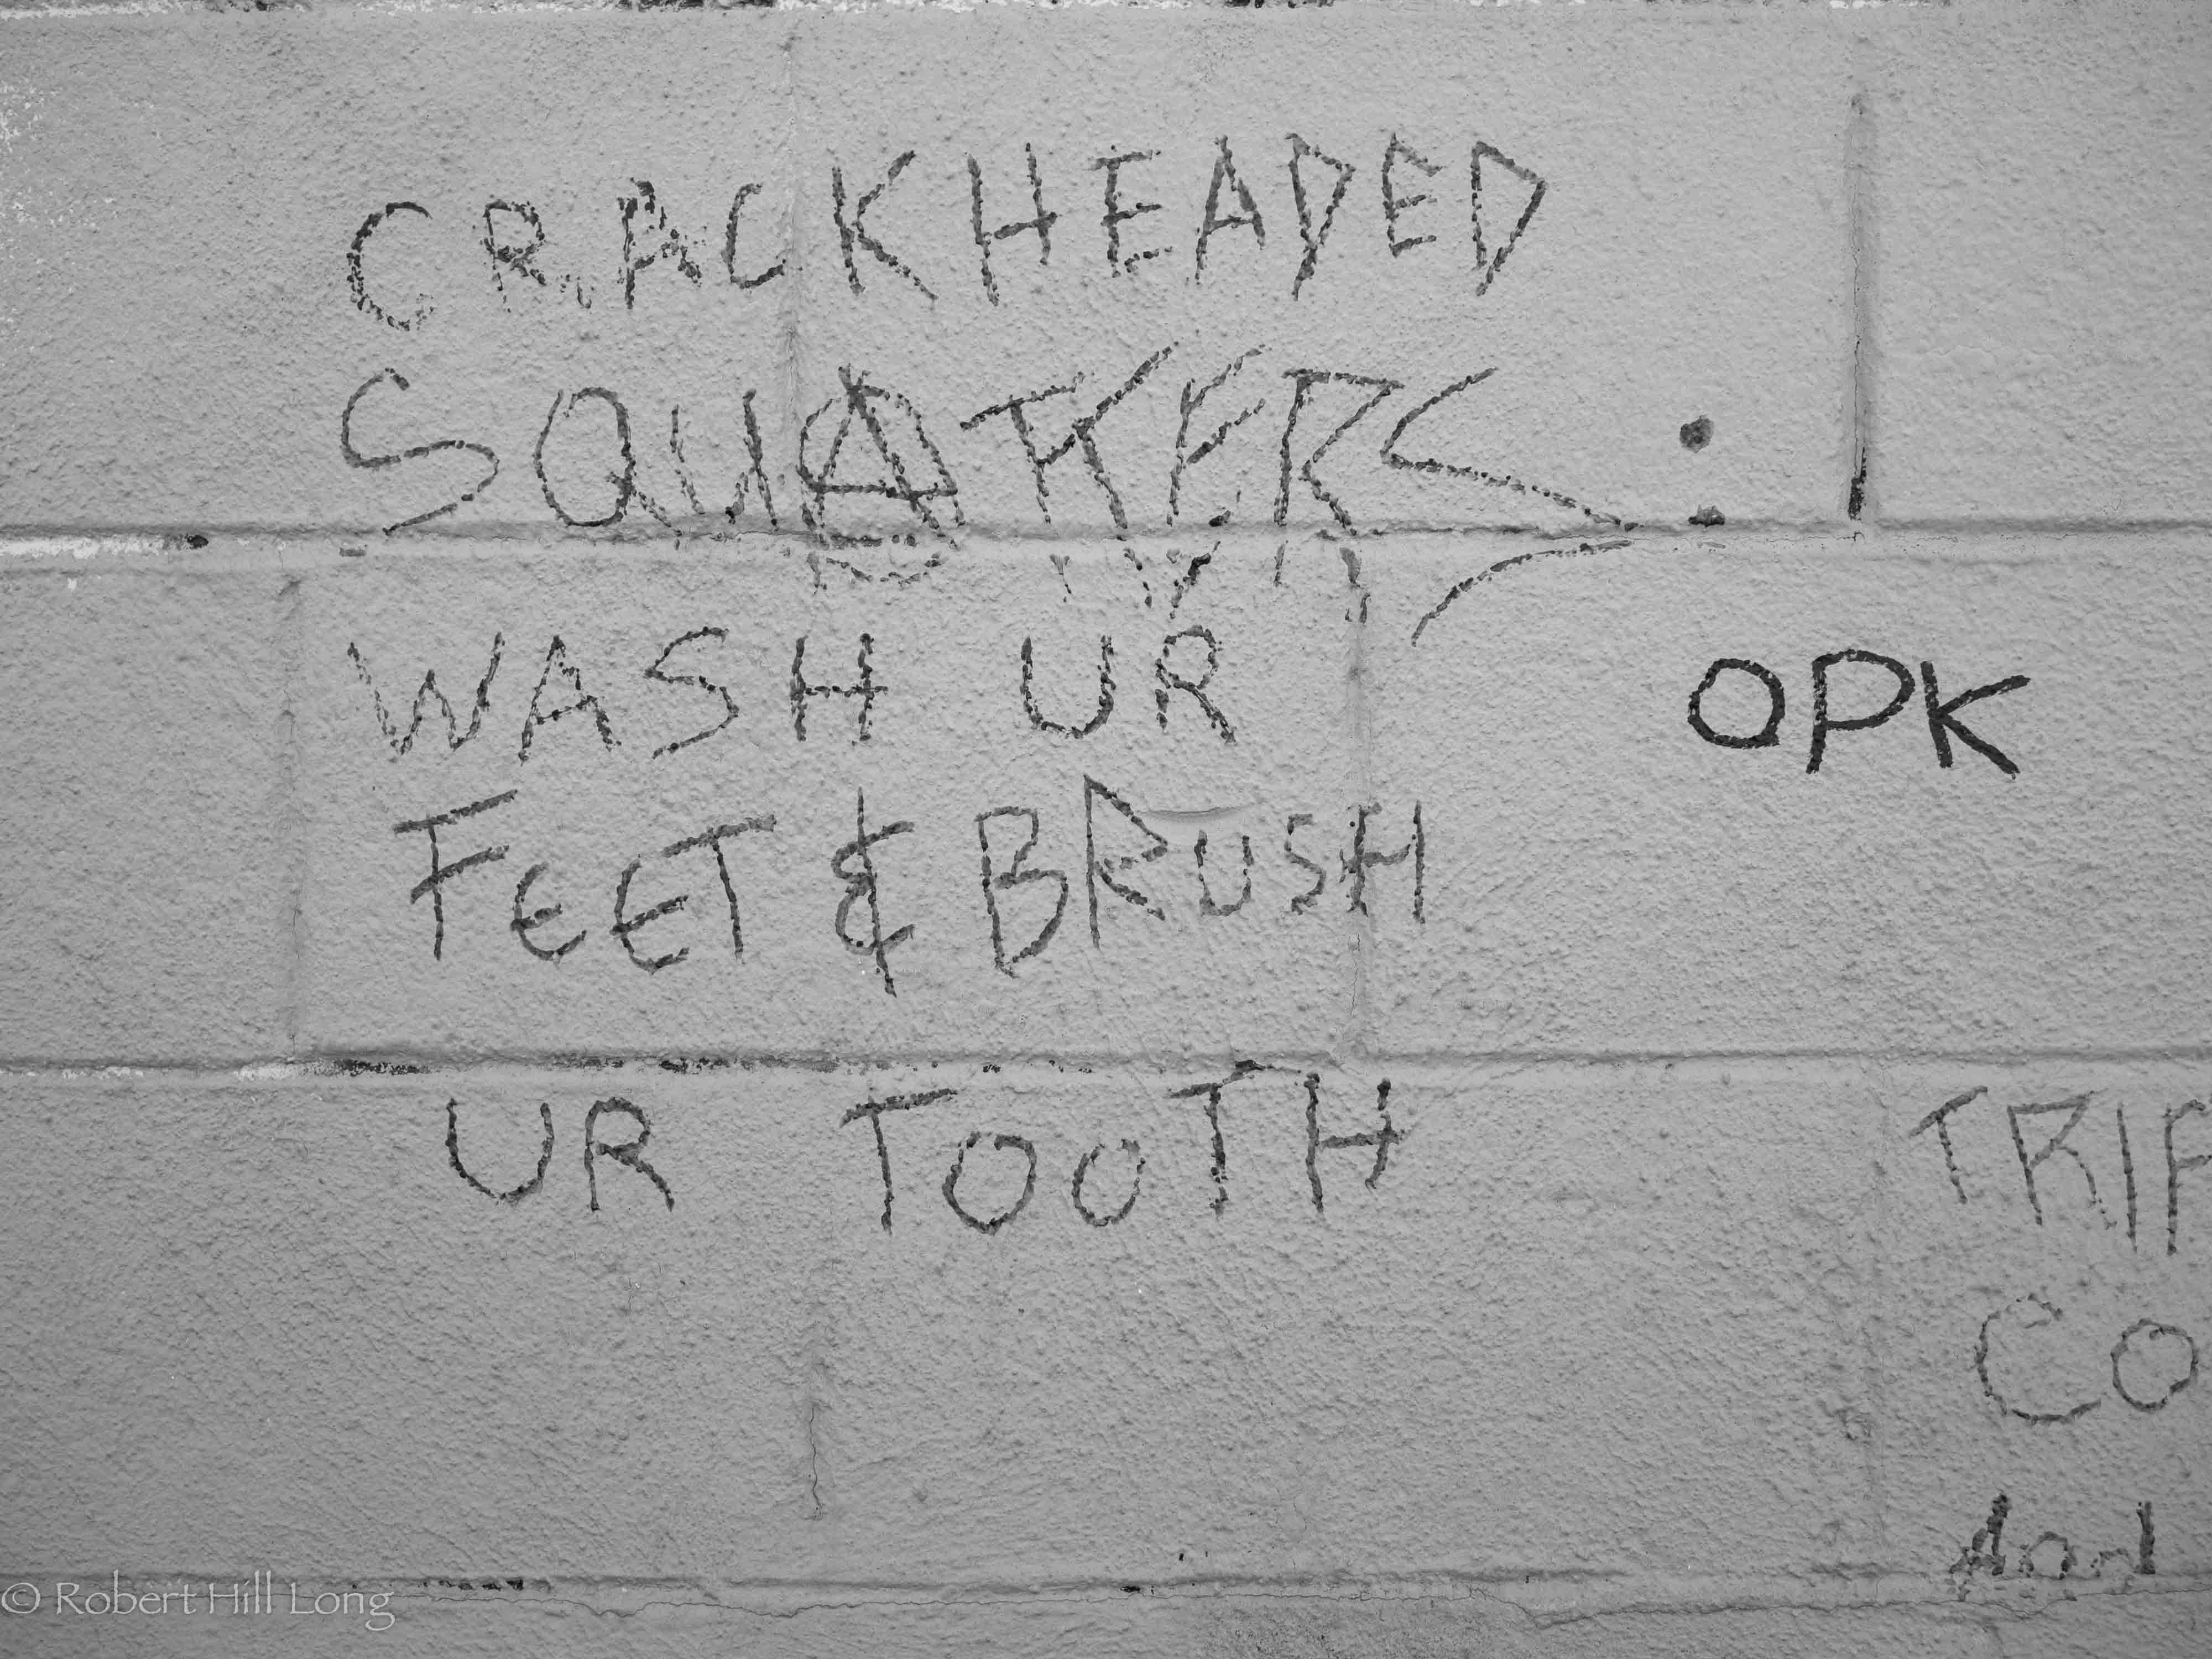 CRACKHEADED
SQUATTERS :
WASH UR
OPK
FEET & BRUSH
UR TOOTH
TRIP
CO
And
© Robert Hill Long